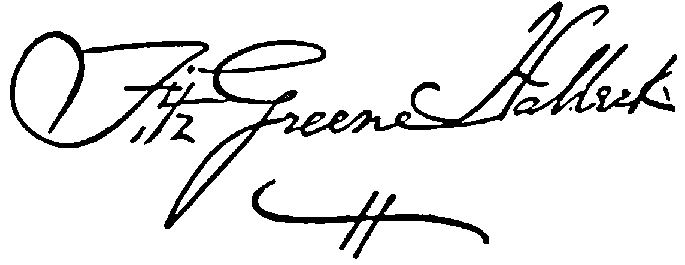 Fitz Greene Halleck